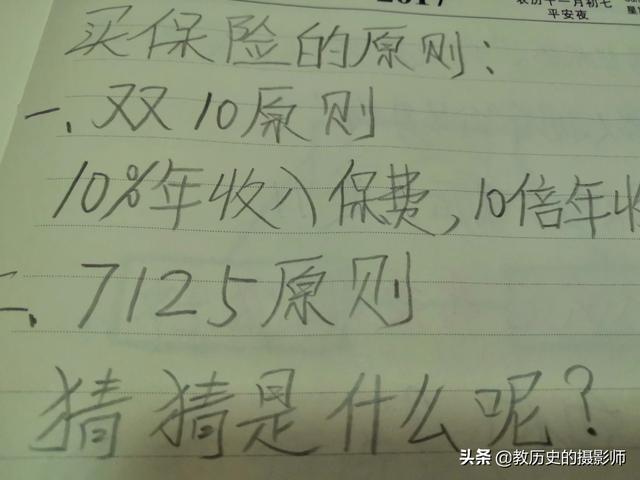 2017
农历十一月初七
平安夜
买保险的原则:
一、双10原则
10%年收入保费,10倍年收
二、7125原则
猜猜是什么呢?
头条 @教历史的摄影师